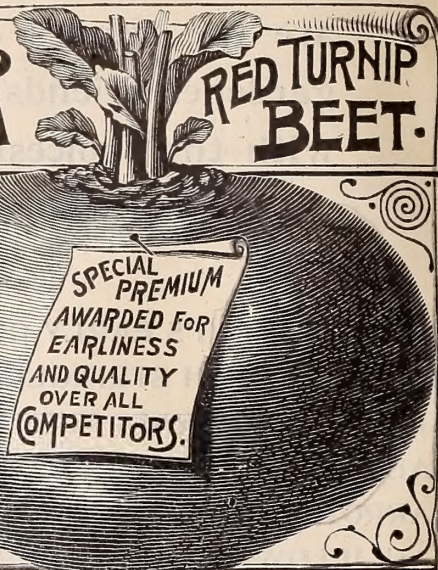 RED TURNIP
BEET.
SPECIAL
PREMIUM
AWARDED FOR
EARLINESS
AND QUALITY
OVER ALL
COMPETITORS.